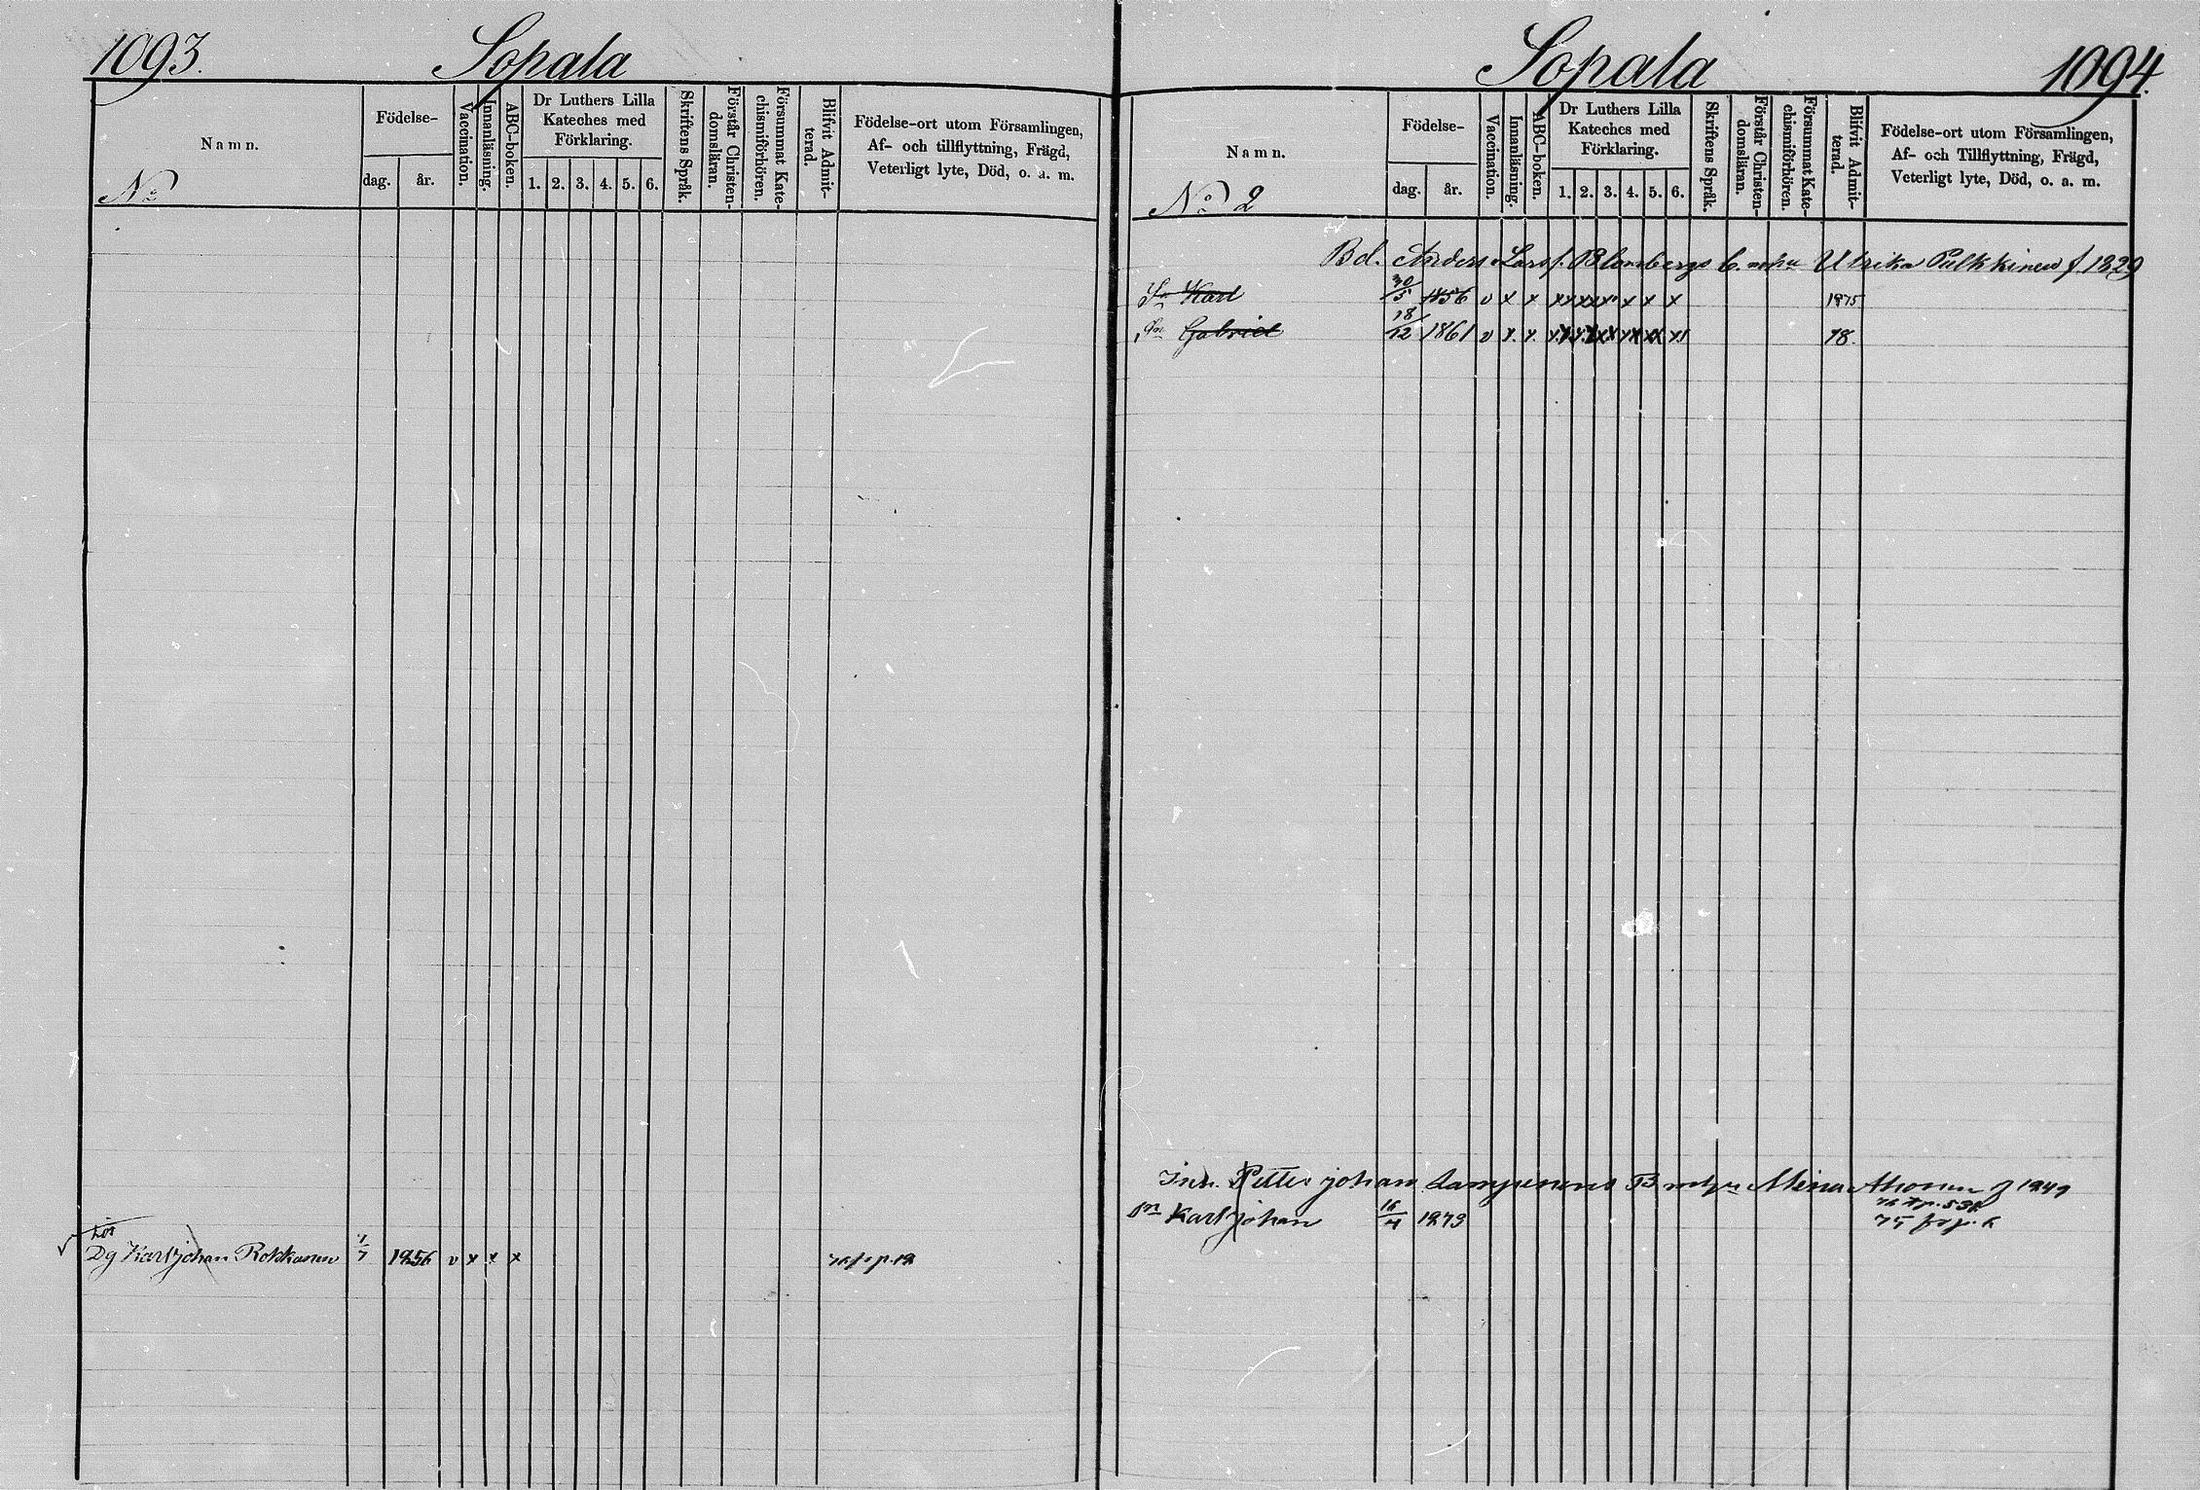 1093.
Sopala
Namn.
No
Födelse-
dag.
år.
Vaccination.
Innanläsning.
ABC-boken.
Dr Luthers Lilla
Kateches med
Förklaring.
1. 2. 3. 4. 5. 6.
Skriftens Språk.
Förstår Christen-
domsläran.
Försummat Kate-
chismiförhören.
Blifvit Admit-
terad.
Födelse-ort utom Församlingen,
Af- och tillflyttning, Frägd,
Veterligt lyte, Död, o. a. m.
Dg Karl johan Rokkanen 1/7 1856 v x x x
Sopala
1094.
Namn.
No 2
Födelse-
dag.
år.
Vaccination.
Innanläsning.
ABC-boken.
Dr Luthers Lilla
Kateches med
Förklaring.
1. 2. 3. 4. 5. 6.
Skriftens Språk.
Förstår Christen-
domsläran.
Försummat Kate-
chismiförhören.
Blifvit Admit-
terad.
Födelse-ort utom Församlingen,
Af- och Tillflyttning, Frägd,
Veterligt lyte, Död, o. a. m.
Bd. Anders Larsf. Blombergs Ulrika Pulkkinen f. 1829
Sn Karl 30/5 1856 v x x x x x x x x 1875
Sn Gabriel 18/12 1861 v x x x x x x x x 78.
Inh. Petter johan Lampinens Mina Ahonen f 1849
Sn Karl johan 16/4 1873